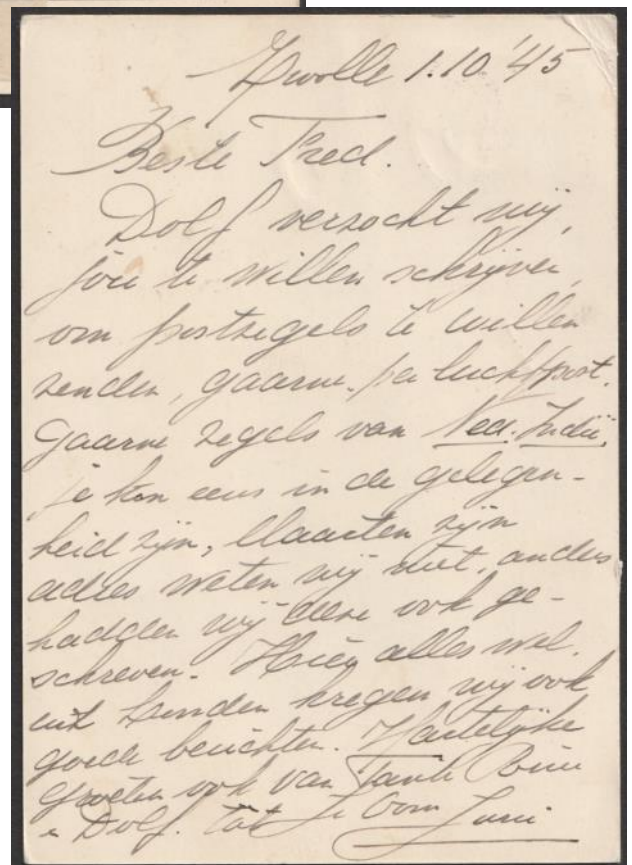 Zwolle 1.10.'45
Beste Fred.
Dolf verzocht mij,
jou te willen schrijven,
om postzegels te willen
zenden, gaarne per luchtpost.
Gaarne zegels van Ned. Indië,
je kon eens in de gelegen-
heid zijn, Maarten zijn
adres weten wij niet, anders
hadden wij deze ook ge-
schreven. Hier alles wel.
uit kregen wij ook
goede berichten. Hartelijke
groeten ook van Tante
Dolf. tot Je Oom